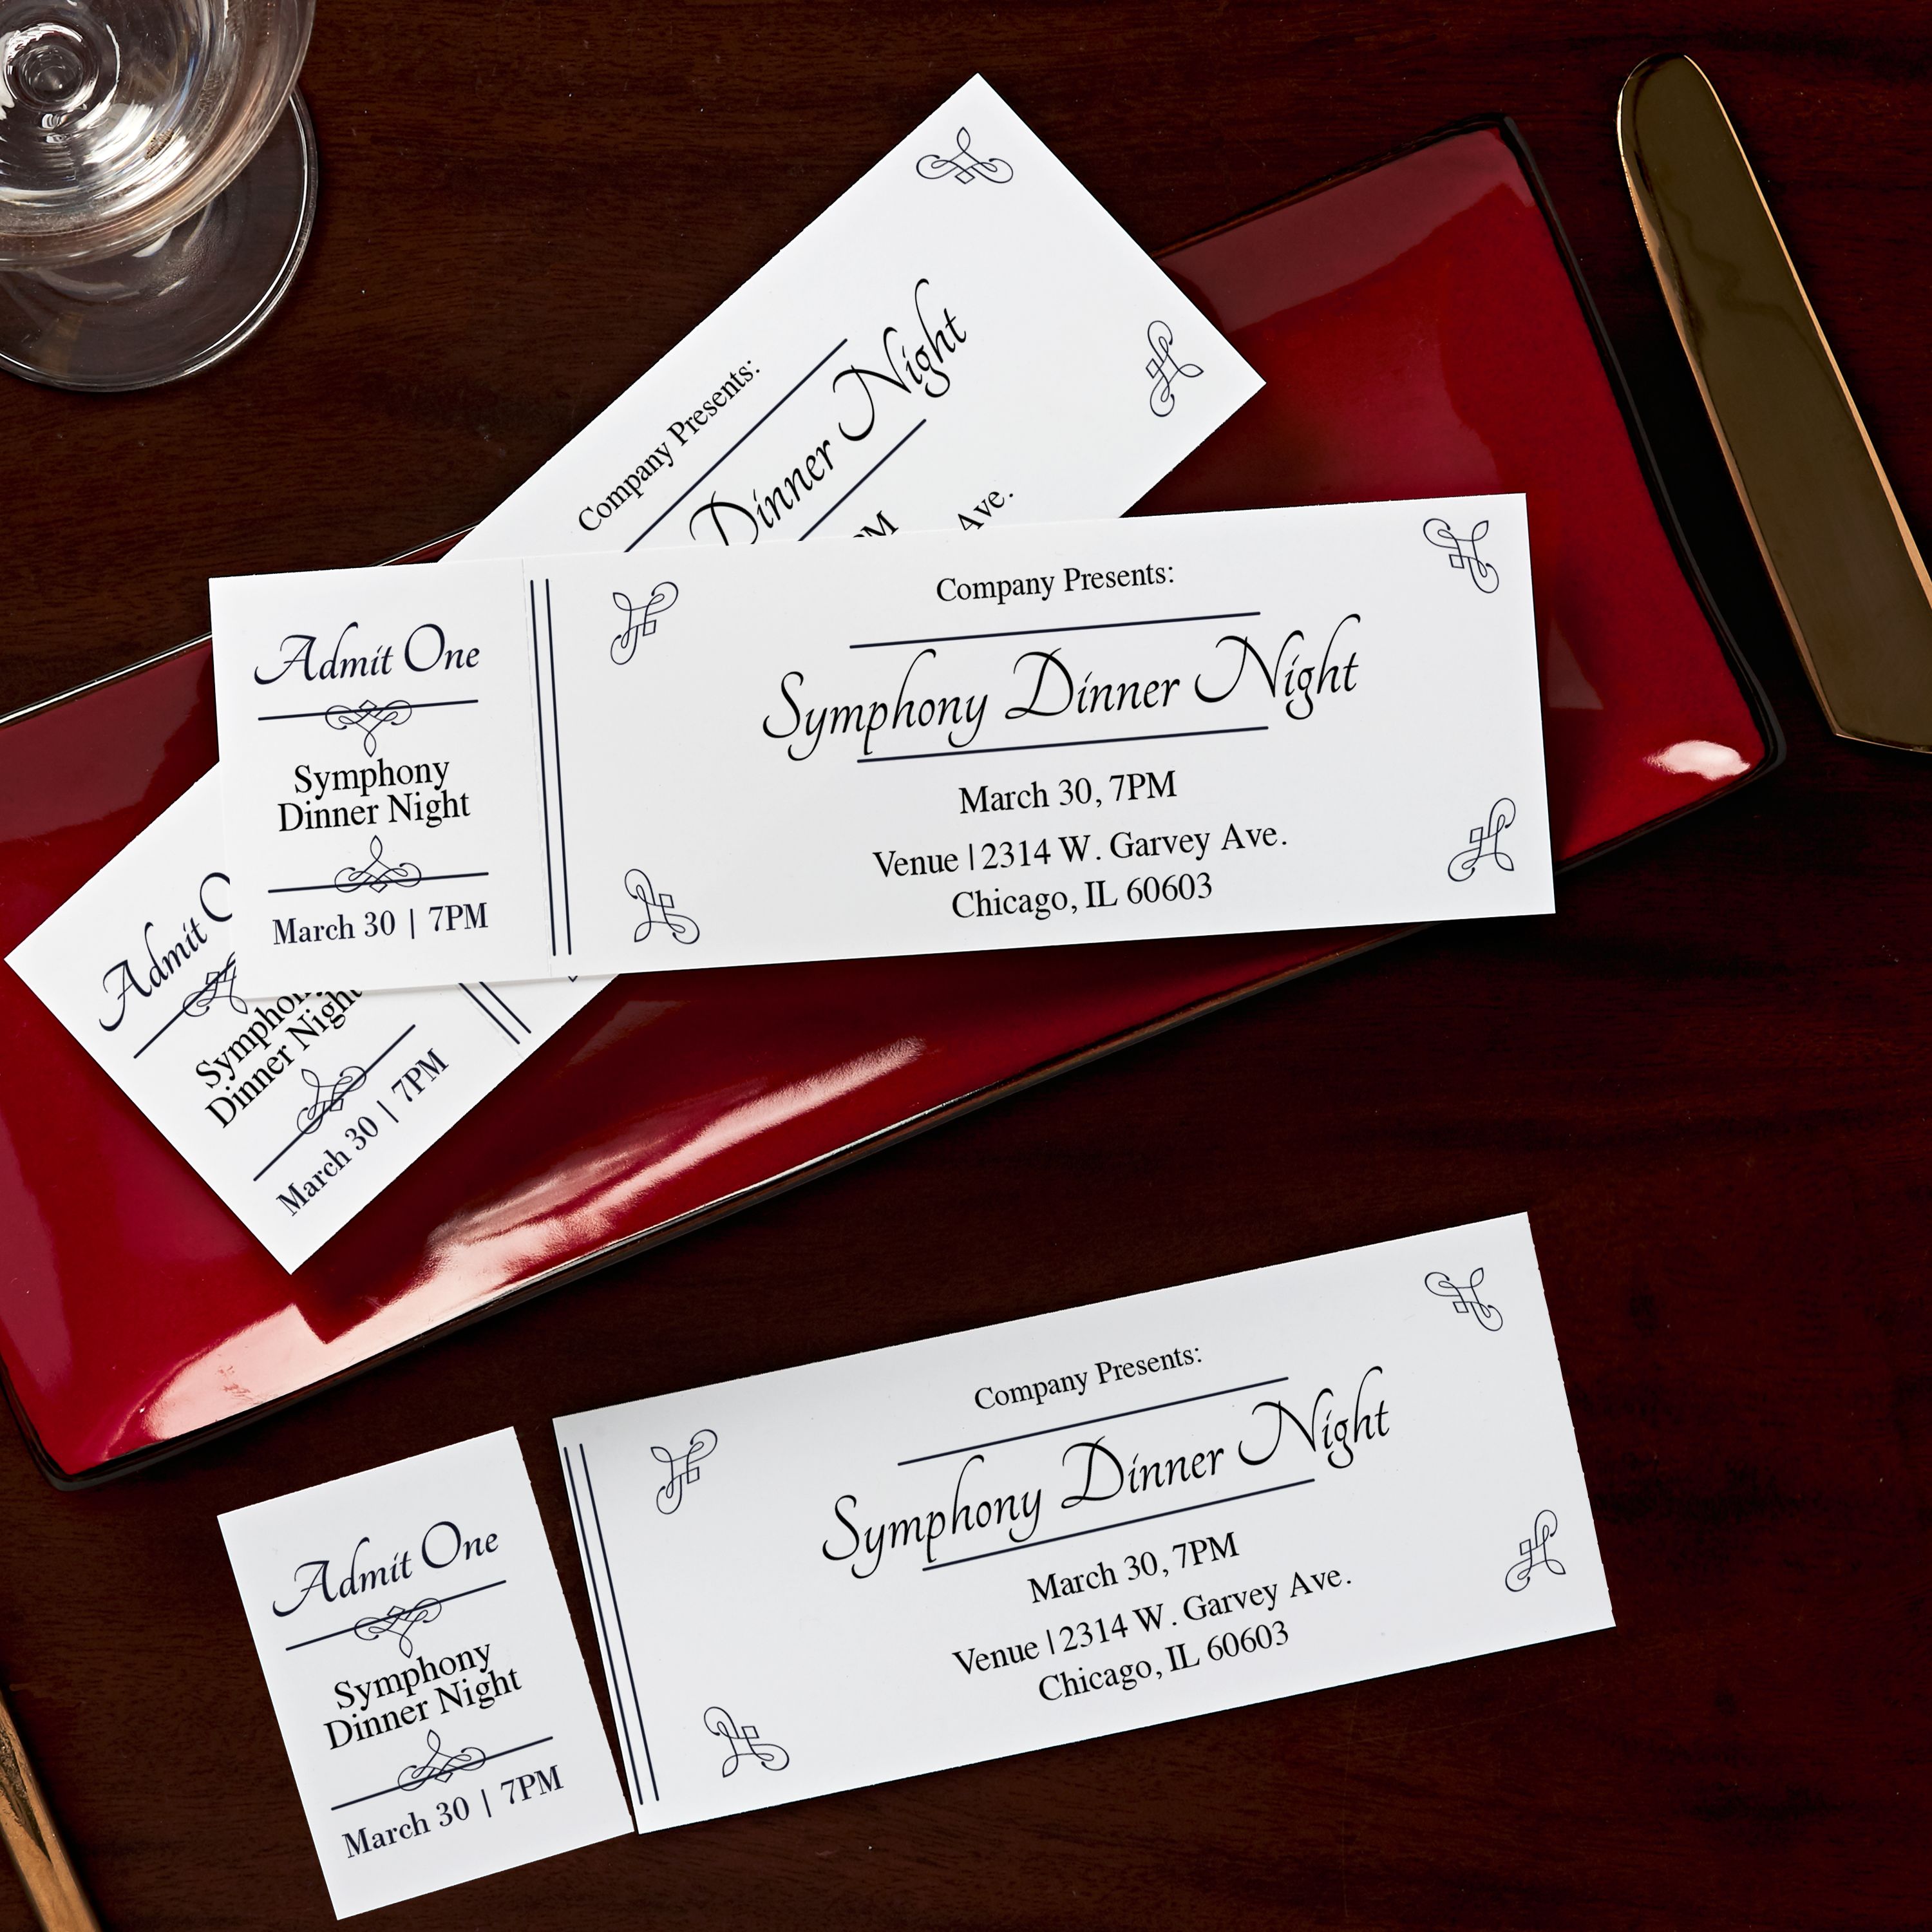 Company Presents:
Dinner Night
PM
Ave.
Admit One
Symphony
Dinner Night
March 30 | 7PM
Company Presents:
Symphony Dinner Night
March 30, 7PM
Venue | 2314 W. Garvey Ave.
Chicago, IL 60603
Admit
Symphony
Dinner Night
March 30 | 7PM
Admit One
Symphony
Dinner Night
March 30 | 7PM
Company Presents:
Symphony Dinner Night
March 30, 7PM
Venue | 2314 W. Garvey Ave.
Chicago, IL 60603